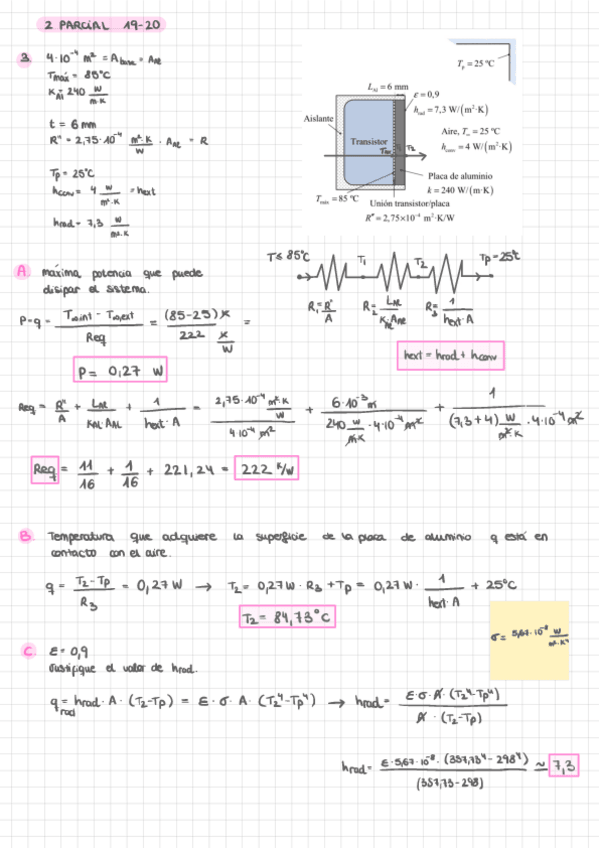 2 PARCIAL 19-20
3. 4·10⁻⁴ m² = A base = A Al
Tmáx = 85°C
K Al = 240 W/m·K
t = 6 mm
R" = 2,75·10⁻⁴ m²·K/W · A Al = R
Tp = 25°C
hconv = 4 W/m²·K = hext
hrad = 7,3 W/m²·K
Tp = 25 ºC
L Al = 6 mm
ε = 0,9
hrad = 7,3 W/(m²·K)
Aislante
Aire, T∞ = 25 ºC
hconv = 4 W/(m²·K)
Transistor
T2
Placa de aluminio
k = 240 W/(m·K)
Tmáx = 85 ºC
Unión transistor/placa
R" = 2,75×10⁻⁴ m²·K/W
A máxima potencia que puede
disipar el sistema.
T≤85°C T1 T2 Tp=25°C
R1 = R"/A R2 = L Al/K Al·A Al R3 = 1/hext·A
P=q = (T∞,int - T∞,ext)/Req = (85-25)K/222 K/W =
hext = hrad + hconv
P = 0,27 W
Req = R"/A + L Al/K Al·A Al + 1/hext·A = 2,75·10⁻⁴ m²·K/W / 4·10⁻⁴ m² + 6·10⁻³ m / 240 W/m·K · 4·10⁻⁴ m² + 1/(7,3+4) W/m²·K · 4·10⁻⁴ m²
Req = 11/16 + 1/16 + 221,24 = 222 K/W
B. Temperatura que adquiere la superficie de la placa de aluminio q está en
contacto con el aire.
q = (T2-Tp)/R3 = 0,27 W → T2 = 0,27 W · R3 + Tp = 0,27 W · 1/hext·A + 25°C
T2 = 84,73°C
σ = 5,67·10⁻⁸ W/m²·K⁴
C. ε = 0,9
Justifique el valor de hrad.
q rad = hrad · A · (T2-Tp) = ε · σ · A · (T2⁴-Tp⁴) → hrad = ε·σ·A·(T2⁴-Tp⁴) / A·(T2-Tp)
hrad = ε·5,67·10⁻⁸·(357,73⁴-298⁴) / (357,73-298) ≃ 7,3